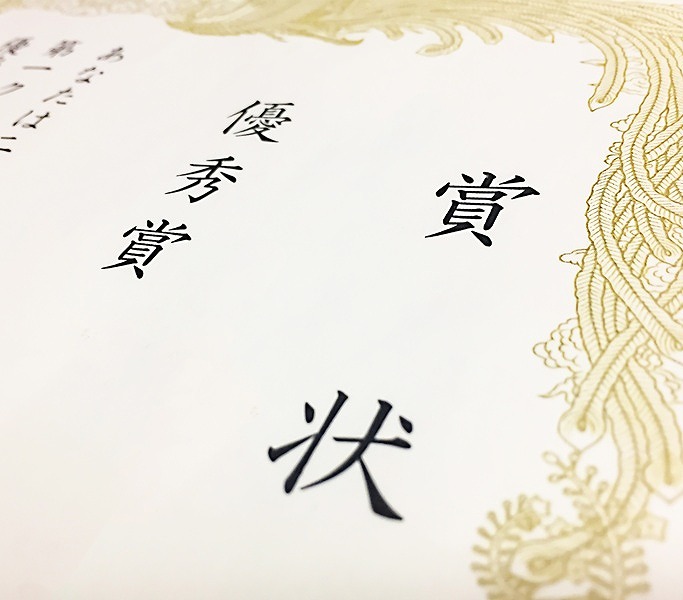 賞状
優秀賞
あなたは
第一ク